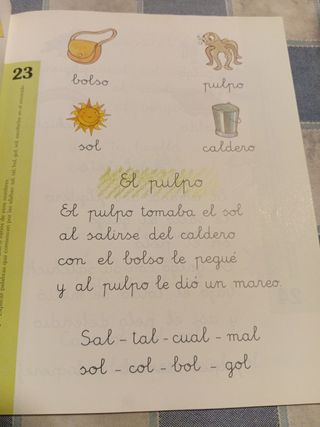 23
bolso
pulpo
sol
caldero
El pulpo
El pulpo tomaba el sol
al salirse del caldero
con el bolso le pegué
y al pulpo le dió un mareo.
Sal - tal - cual - mal
sol - col - bol - gol